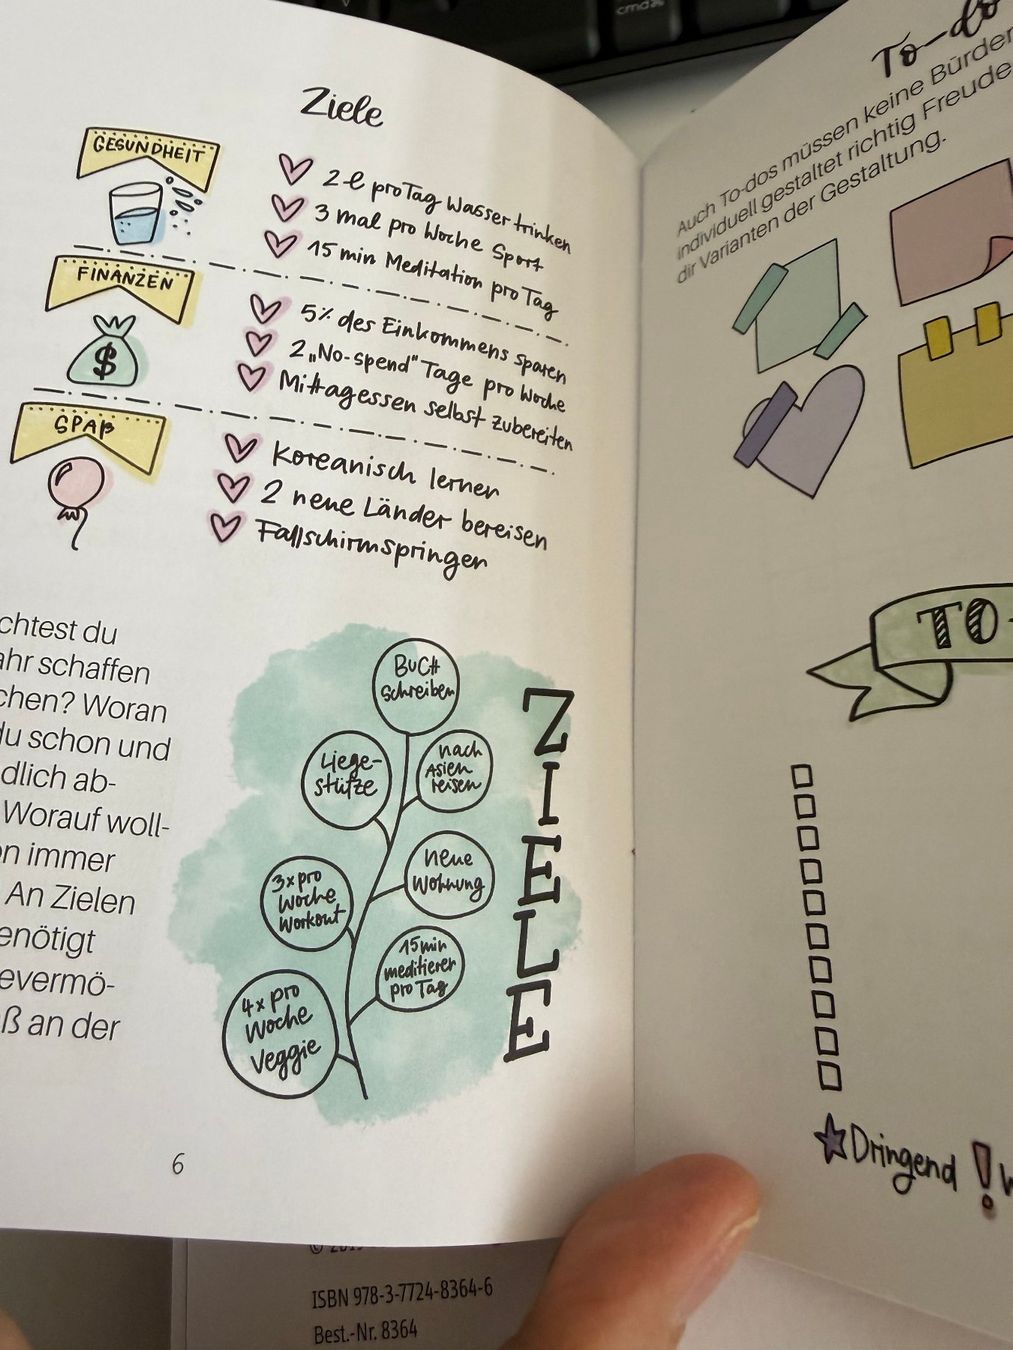 cmd
Ziele
GESUNDHEIT
2 l pro Tag Wasser trinken
3 mal pro Woche Sport
15 min Meditation pro Tag
FINANZEN
$
5% des Einkommens sparen
2 „No-spend“ Tage pro Woche
Mittagessen selbst zubereiten
SPAß
Koreanisch lernen
2 neue Länder bereisen
Fallschirmspringen
chtest du
ahr schaffen
chen? Woran
du schon und
dlich ab-
Worauf woll-
n immer
An Zielen
enötigt
evermö-
ß an der
BUCH
schreiben
Liege-
stütze
nach
Asien
reisen
3x pro
Woche
Workout
neue
Wohnung
15 min
meditieren
pro Tag
4x pro
Woche
Veggie
ZIELE
6
To-do
Auch To-dos müssen keine Bürden
individuell gestaltet richtig Freude
dir Varianten der Gestaltung.
TO-
Dringend ! W
ISBN 978-3-7724-8364-6
Best.-Nr. 8364